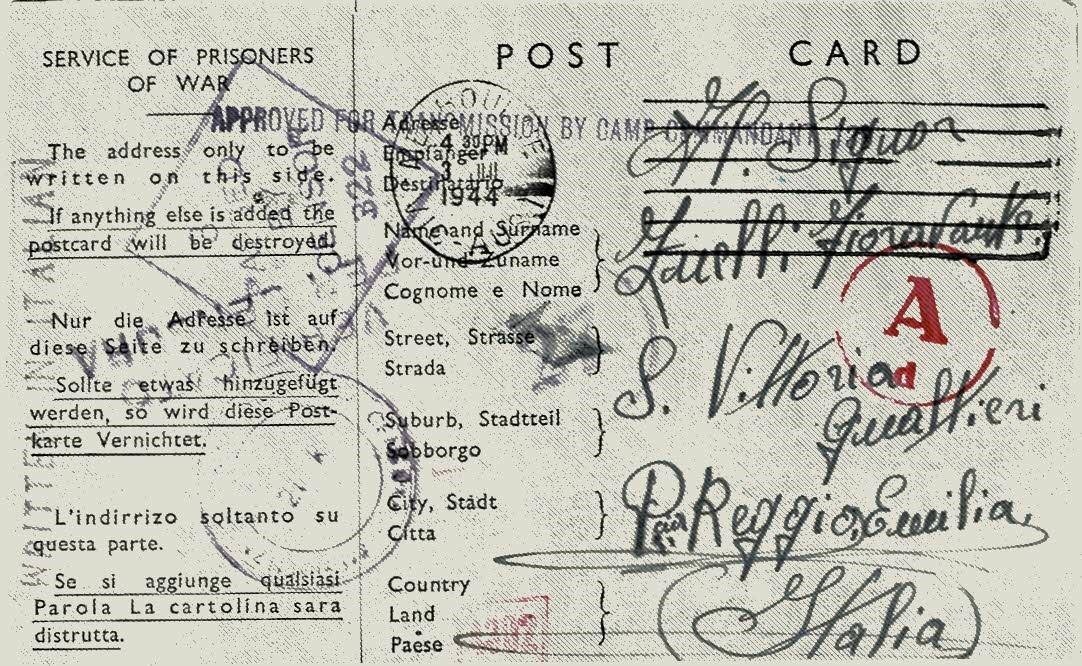 SERVICE OF PRISONERS
OF WAR
The address only to be
written on this side.
If anything else is added the
postcard will be destroyed.
Nur die Adresse ist auf
diese Seite zu schreiben.
Sollte etwas hinzugefügt
werden, so wird diese Post-
karte Vernichtet.
L'indirrizo soltanto su
questa parte.
Se si aggiunge qualsiasi
Parola La cartolina sara
distrutta.
WRITTEN IN ITALIAN
POST CARD
APPROVED FOR TRANSMISSION BY CAMP COMMANDANT
4 30PM
3 JUL
1944
Adresse
Empfänger
Destinatario
Name and Surname
Vor-und Zuname
Cognome e Nome
Street, Strasse
Strada
Suburb, Stadtteil
Sobborgo
City, Städt
Citta
Country
Land
Paese
Al. Signor
S. Vittoria
Gualtieri
Reggio, Emilia,
Italia
A
d
322